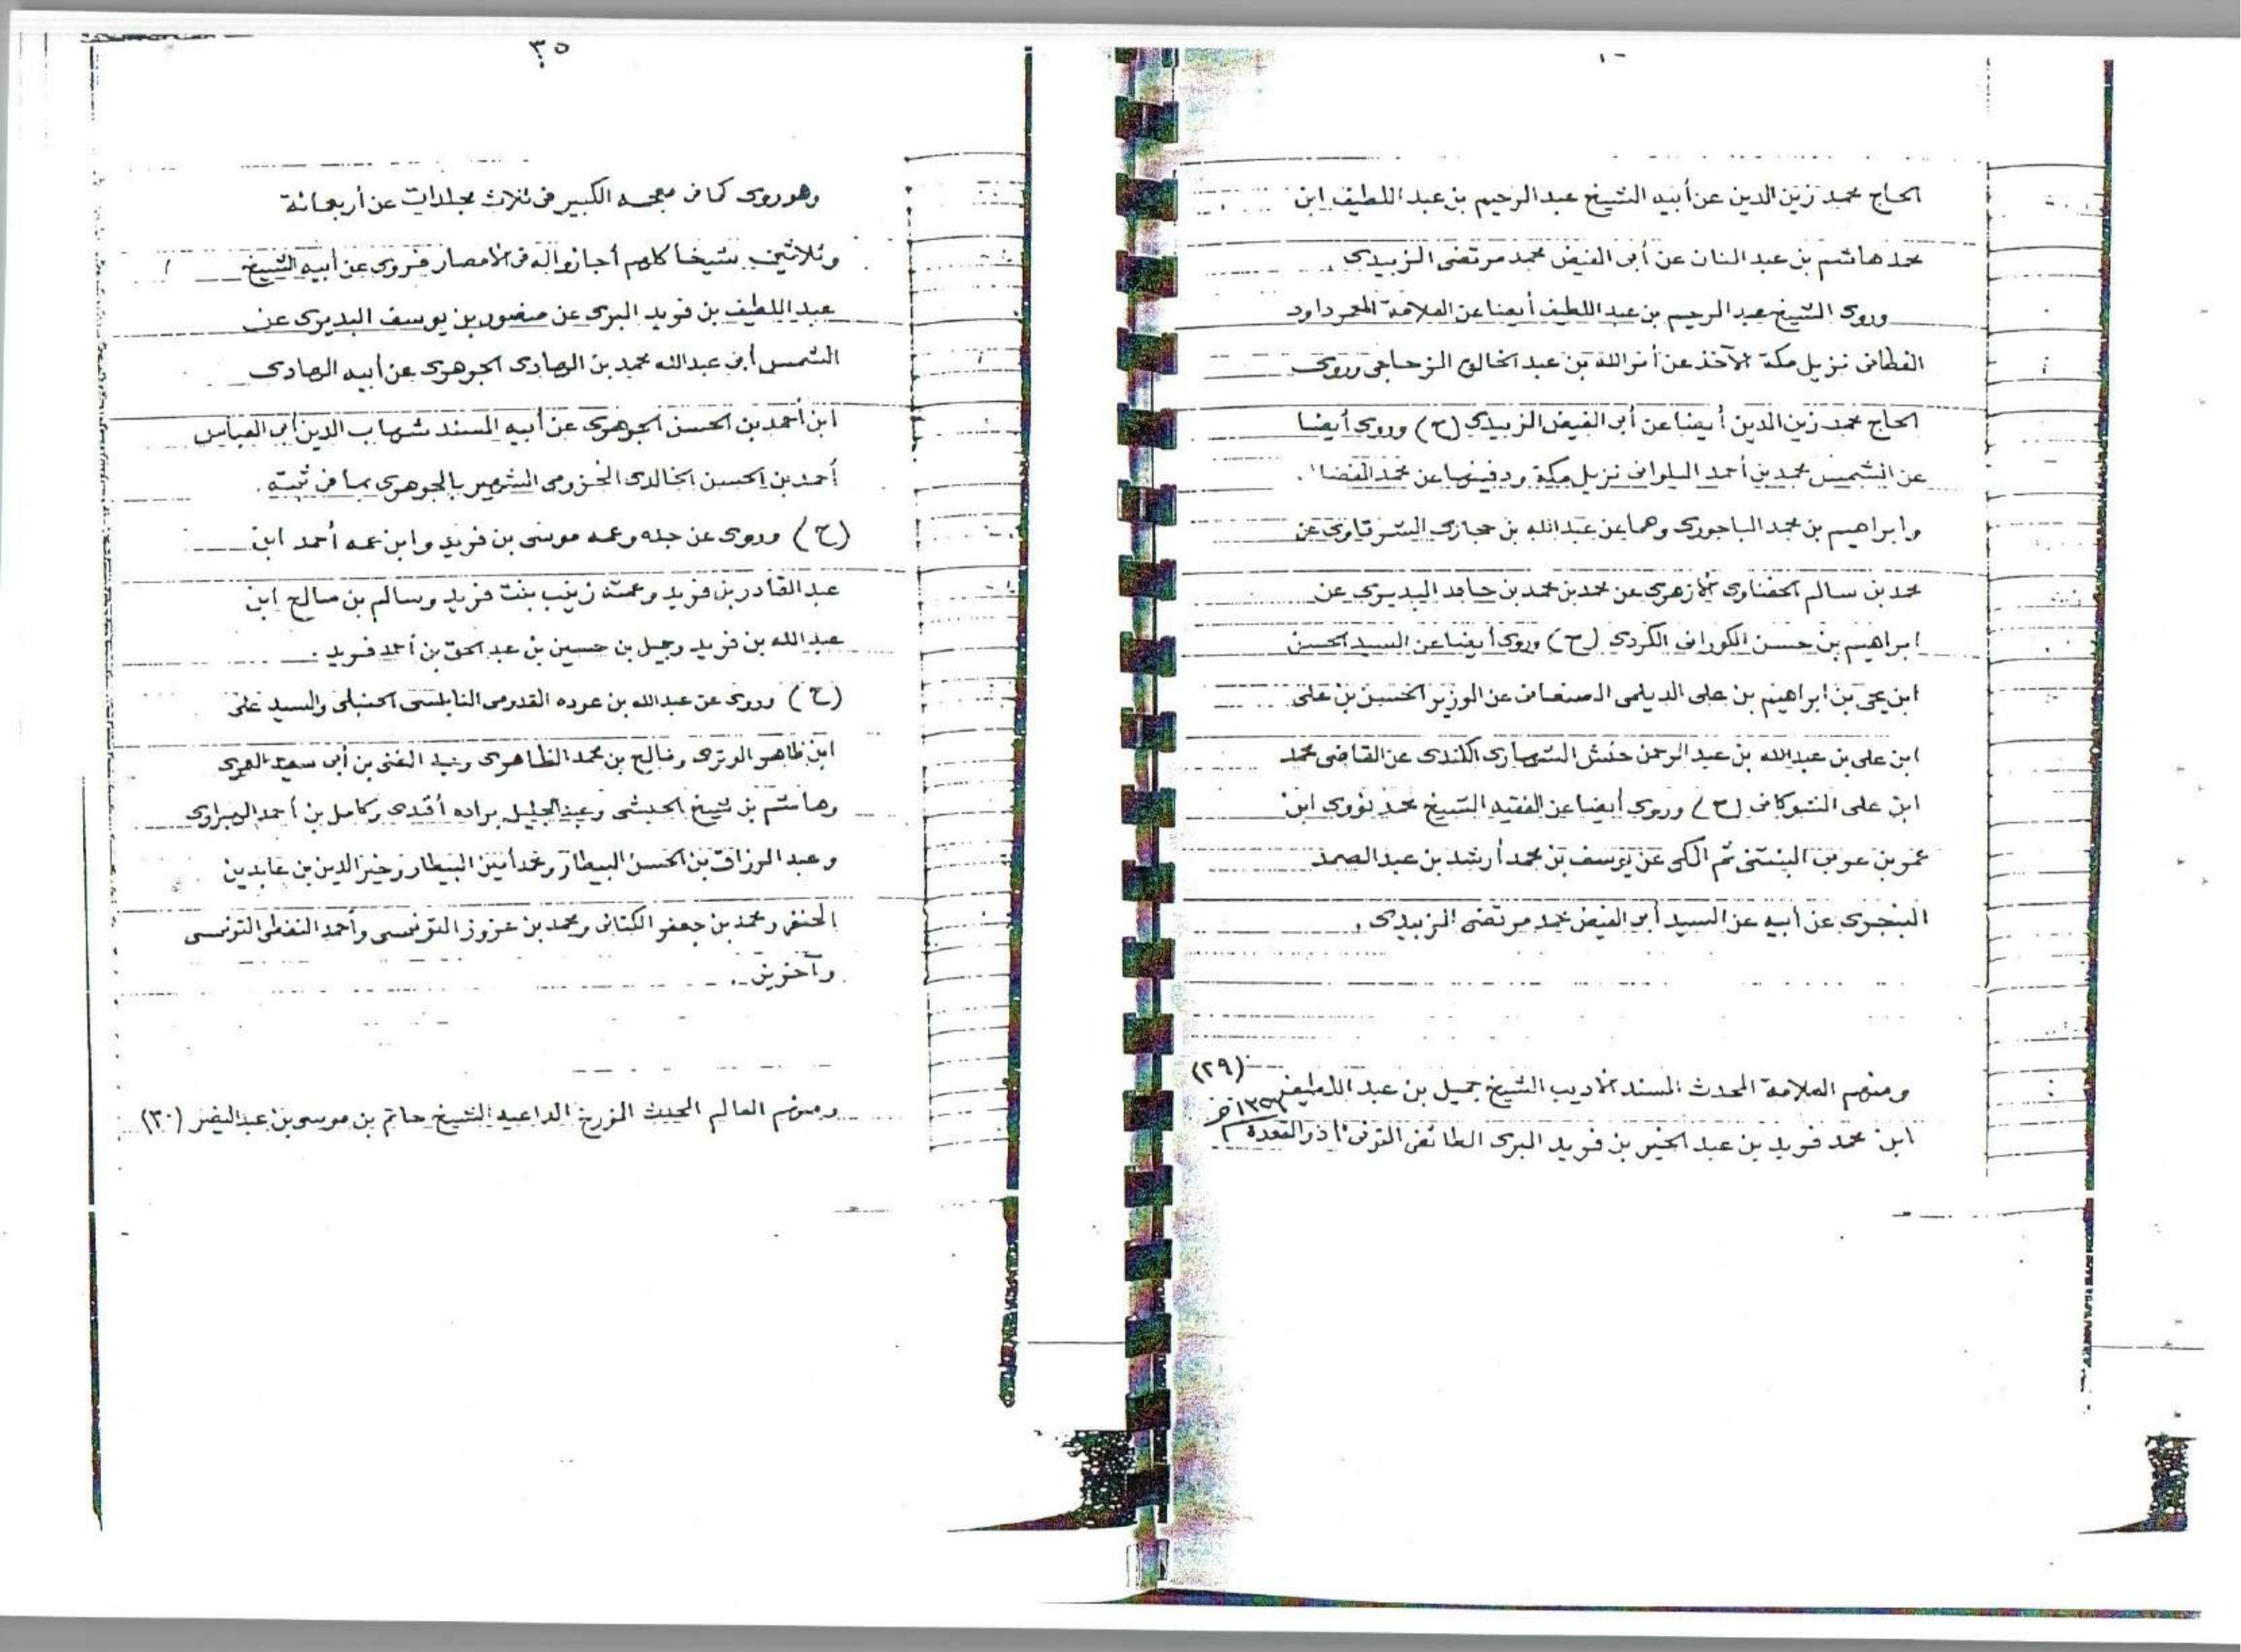 الحاج محمد زين الدين عن أبيه الشيخ عبد الرحيم بن عبد اللطيف ابن
محمد هاشم بن عبد المنان عن أبى الفيض محمد مرتضى الزبيدى .
وروى الشيخ عبد الرحيم بن عبد اللطيف أيضا عن العلامة المعمر داود
نزيل مكة الآخذ عن أمر الله بن عبد الخالق المزجاجى وروى
الحاج محمد زين الدين أيضا عن أبى الفيض الزبيدى (ح) وروى أيضا
عن الشمس محمد بن أحمد نزيل مكة ودفينها عن محمد الفضا
وابراهيم بن محمد الباجورى وهما عن عبد الله بن حجازى الشرقاوى عن
محمد بن سالم الحفناوى الأزهرى عن محمد بن محمد بن حامد البديرى عن
ابراهيم بن حسن الكورانى الكردى (ح) وروى أيضا عن السيد الحسين
ابن يحى بن ابراهيم بن على الديلمى الصنعانى عن الوزير الحسين بن على
ابن على بن عبد الله بن عبد الرحمن حنش الشهارى الكندى عن القاضى محمد
ابن على الشوكانى (ح) وروى أيضا عن الفقيه الشيخ محمد نووى ابن
عمر بن عربى البنتنى ثم المكى عن يوسف بن محمد أرشد بن عبد الصمد
البنجرى عن أبيه عن السيد أبى الفيض محمد مرتضى الزبيدى .
(٢٩)
ومنهم العلامة المحدث المسند الأديب الشيخ جميل بن عبد اللطيف
ابن محمد فريد بن عبد الخير بن فريد البرى الطائفى المتوفى ذو القعدة
٣٥
وهو روى كما فى معجمه الكبير فى ثلاث مجلدات عن أربعمائة
وثلاثين شيخا كلهم أجازوا له فى الأمصار فروى عن أبيه الشيخ
عبد اللطيف بن فريد البرى عن منصور بن يوسف البديرى عن
الشمس أبى عبد الله محمد بن الهادى الجوهرى عن أبيه الهادى
ابن أحمد بن الحسن الجوهرى عن أبيه المسند شهاب الدين أبى العباس
أحمد بن الحسن الخالدى المخزومى الشهير بالجوهرى بما فى ثبته .
(ح) وروى عن جده وعمه موسى بن فريد وابن عمه أحمد ابن
عبد القادر بن فريد وعمته زينب بنت فريد وسالم بن صالح ابن
عبد الله بن فريد وجميل بن حسين بن عبد الحق بن أحمد فريد .
(ح) وروى عن عبد الله بن عوده القدومى النابلسى الحنبلى والسيد على
ابن ظاهر الوترى وفالح بن محمد الظاهرى وعبد الغنى بن أبى سعيد العمرى
وهاشم بن شيخ الحبشى وعبد الجليل براده أفندى وكامل بن أحمد الهبراوى
وعبد الرزاق بن الحسن البيطار ومحمد أمين البيطار وخير الدين بن عابدين
الحنفى ومحمد بن جعفر الكتانى ومحمد بن عزوز التونسى وأحمد النفطى التونسى
وآخرين .
ومنهم العالم المحدث المؤرخ الداعيه الشيخ حاتم بن موسى بن عبد البصر (٣٠)